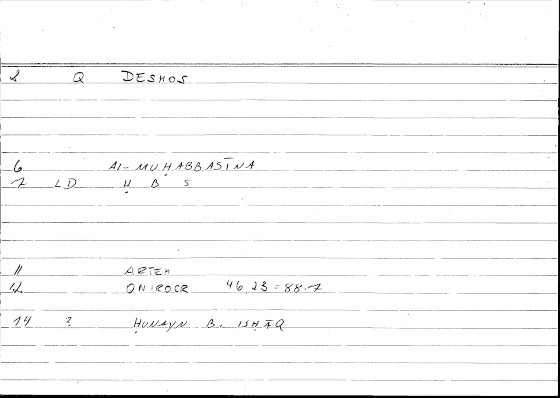 2 Q DESMOS
6 Al-MUḤABBASĪNA
7 LD Ḥ B S
11 ARTEM
12 ONIROCR 46,23 = 88.7
14 ? ḤUNAYN B. ISḤĀQ